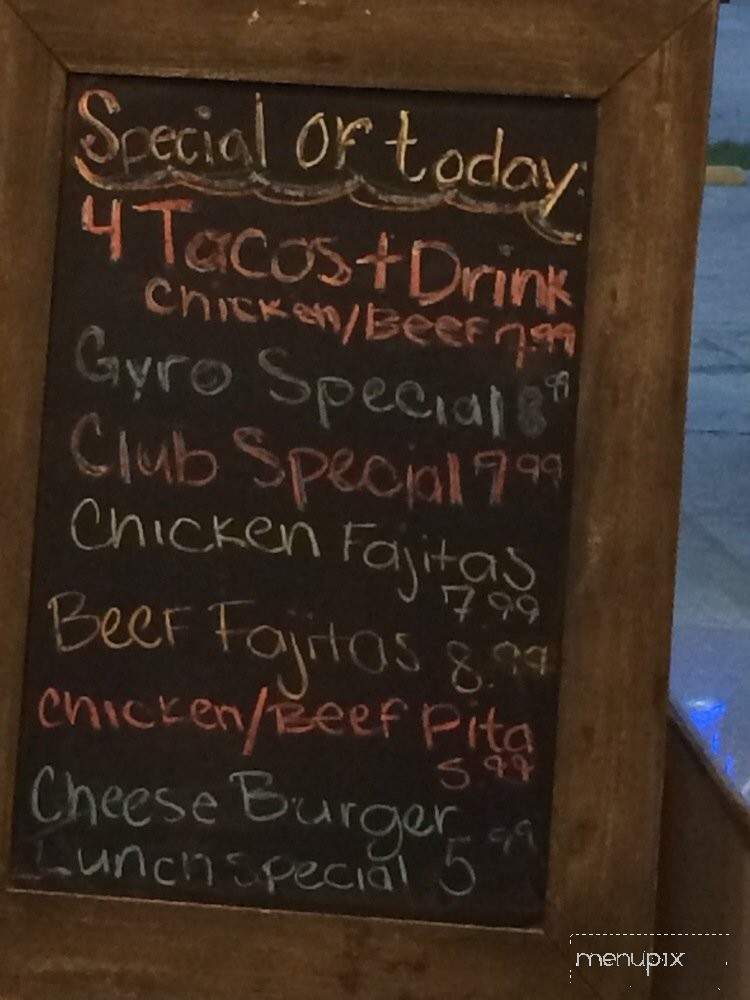 Special OF today:
4 Tacos + Drink
Chicken/Beef 7.99
Gyro Special 8 99
Club Special 7 99
Chicken Fajitas
7.99
Beef Fajitas 8.99
Chicken/Beef Pita
5.99
Cheese Burger
Lunch special 5 99
menupix